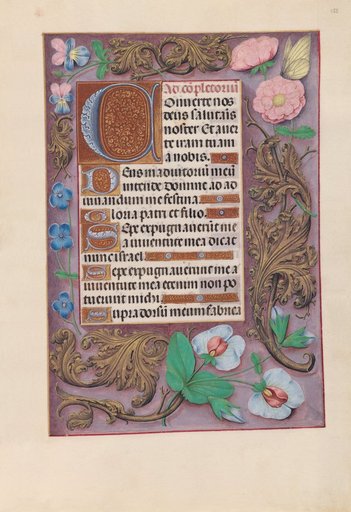 Ad cõpletoriũ
Onuerte nos
deus salutaris
noster Et auer
te iram tuam
a nobis.
Deus in adiutoriũ meũ
intende domine ad ad
iuuandum me festina.
Gloria patri et filio.
Sepe expugnauerũt me
a iuuentute mea dicat
nunc israel.
Sepe expugnauerunt me a
iuuentute mea etenim non po
tuerunt michi.
Supra dorsũ meum fabrica